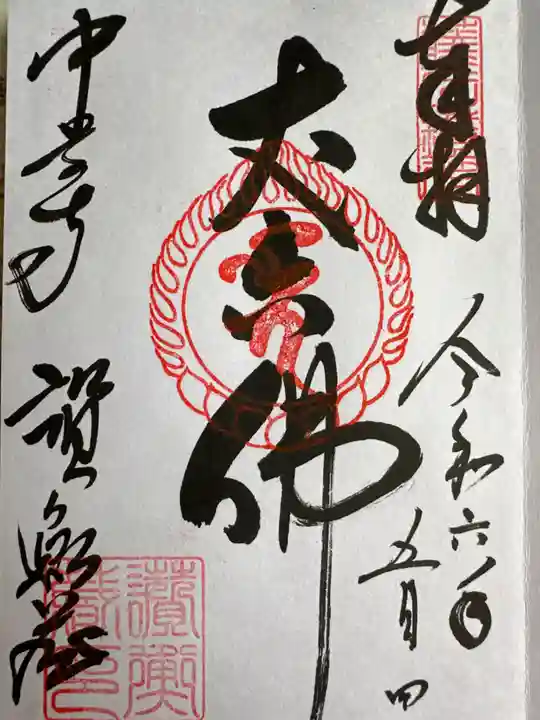 奉拝
令和六年
五月四
丈六佛
中尊寺 讃衡蔵
讃衡蔵印